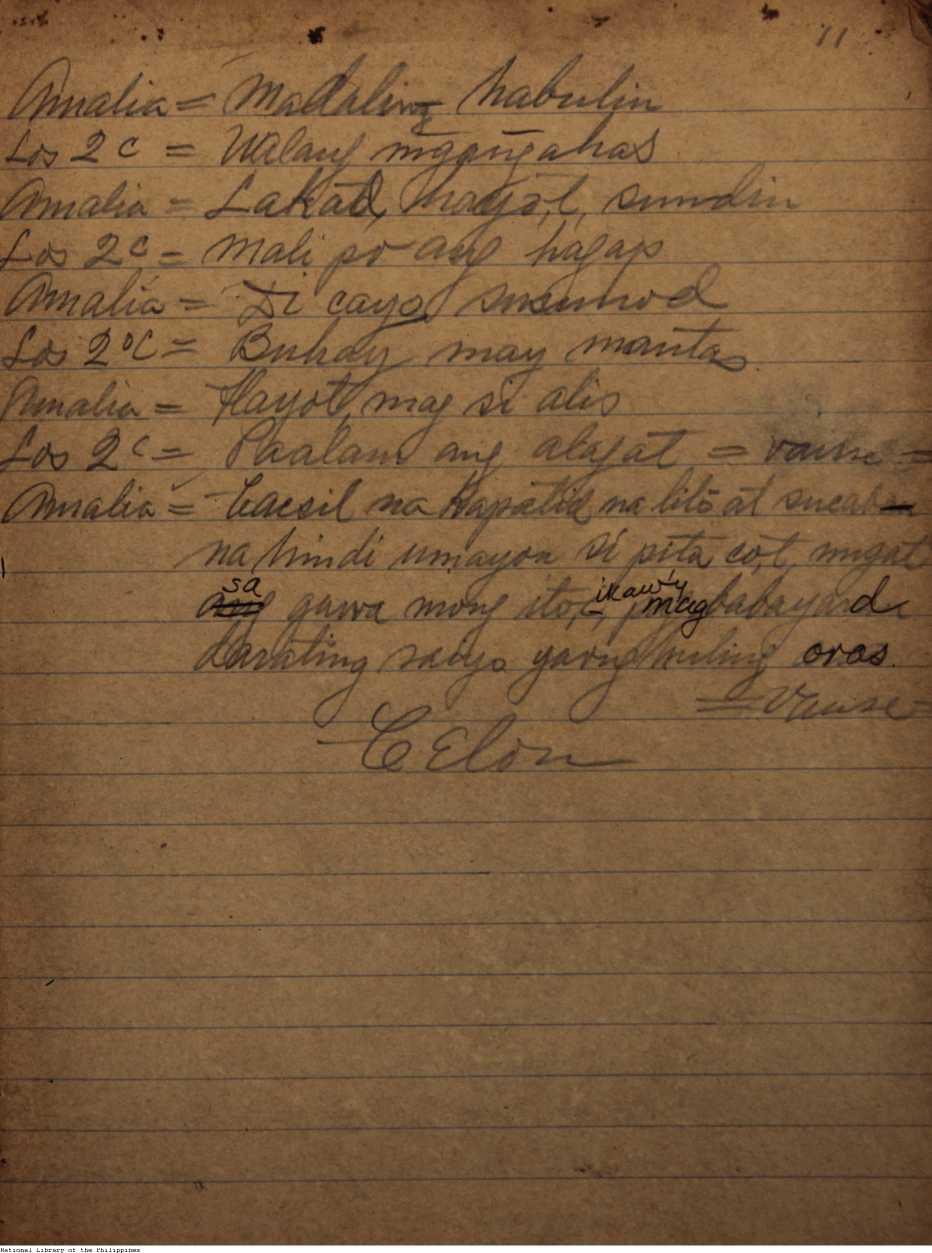 11
Amalia = Madaling habulin
Los 2 c = Walang mgangahas
Amalia = Lakad, hayo,t, sundin
Los 2 c = Mali po ang hagap
Amalia = Di cayo susunod
Los 2 c = Buhay may manta
Amalia = Hayo,t, mag si alis
Los 2 c = Paalam ang alagat = vanse =
Amalia = Tacsil na Kapatid na lito at sucab
na hindi umayon si pita co,t, nugat
sa
ang gawa mong ito,t, ikaw'y magbabayad
darating saiyo yaong huling oras.
= Vanse =
Telon
National Library of the Philippines